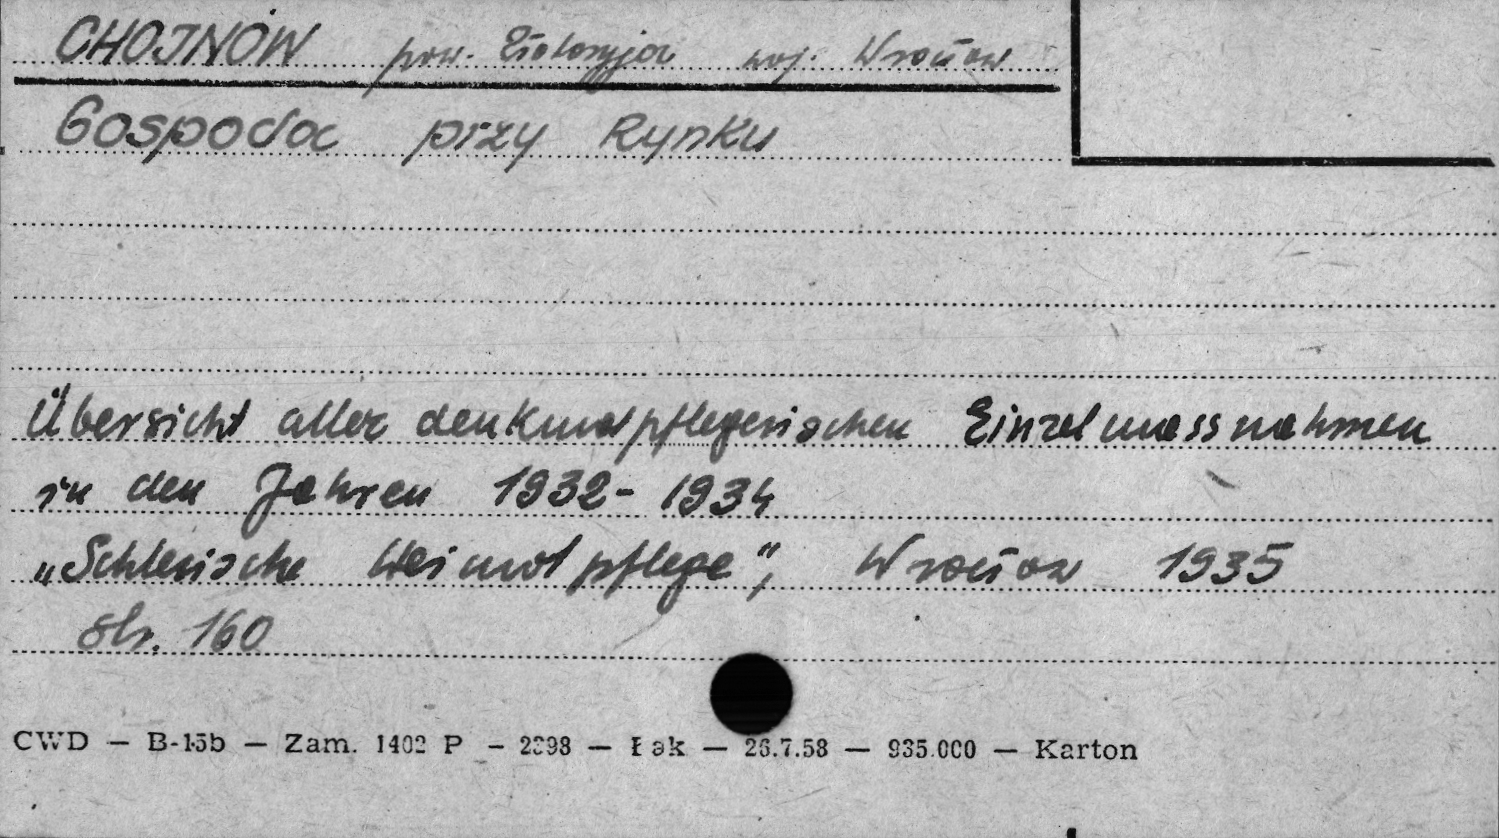 CHOJNÓW pow. Złotoryja woj. Wrocław
Gospoda przy Rynku
Übersicht aller denkmalpflegerischen Einzelmassnahmen
in den Jahren 1932-1934
„Schlesische Heimatpflege", Wrocław 1935
str. 160
CWD — B-15b — Zam. 1402 P — 2398 — Łak — 26.7.58 — 935.000 — Karton